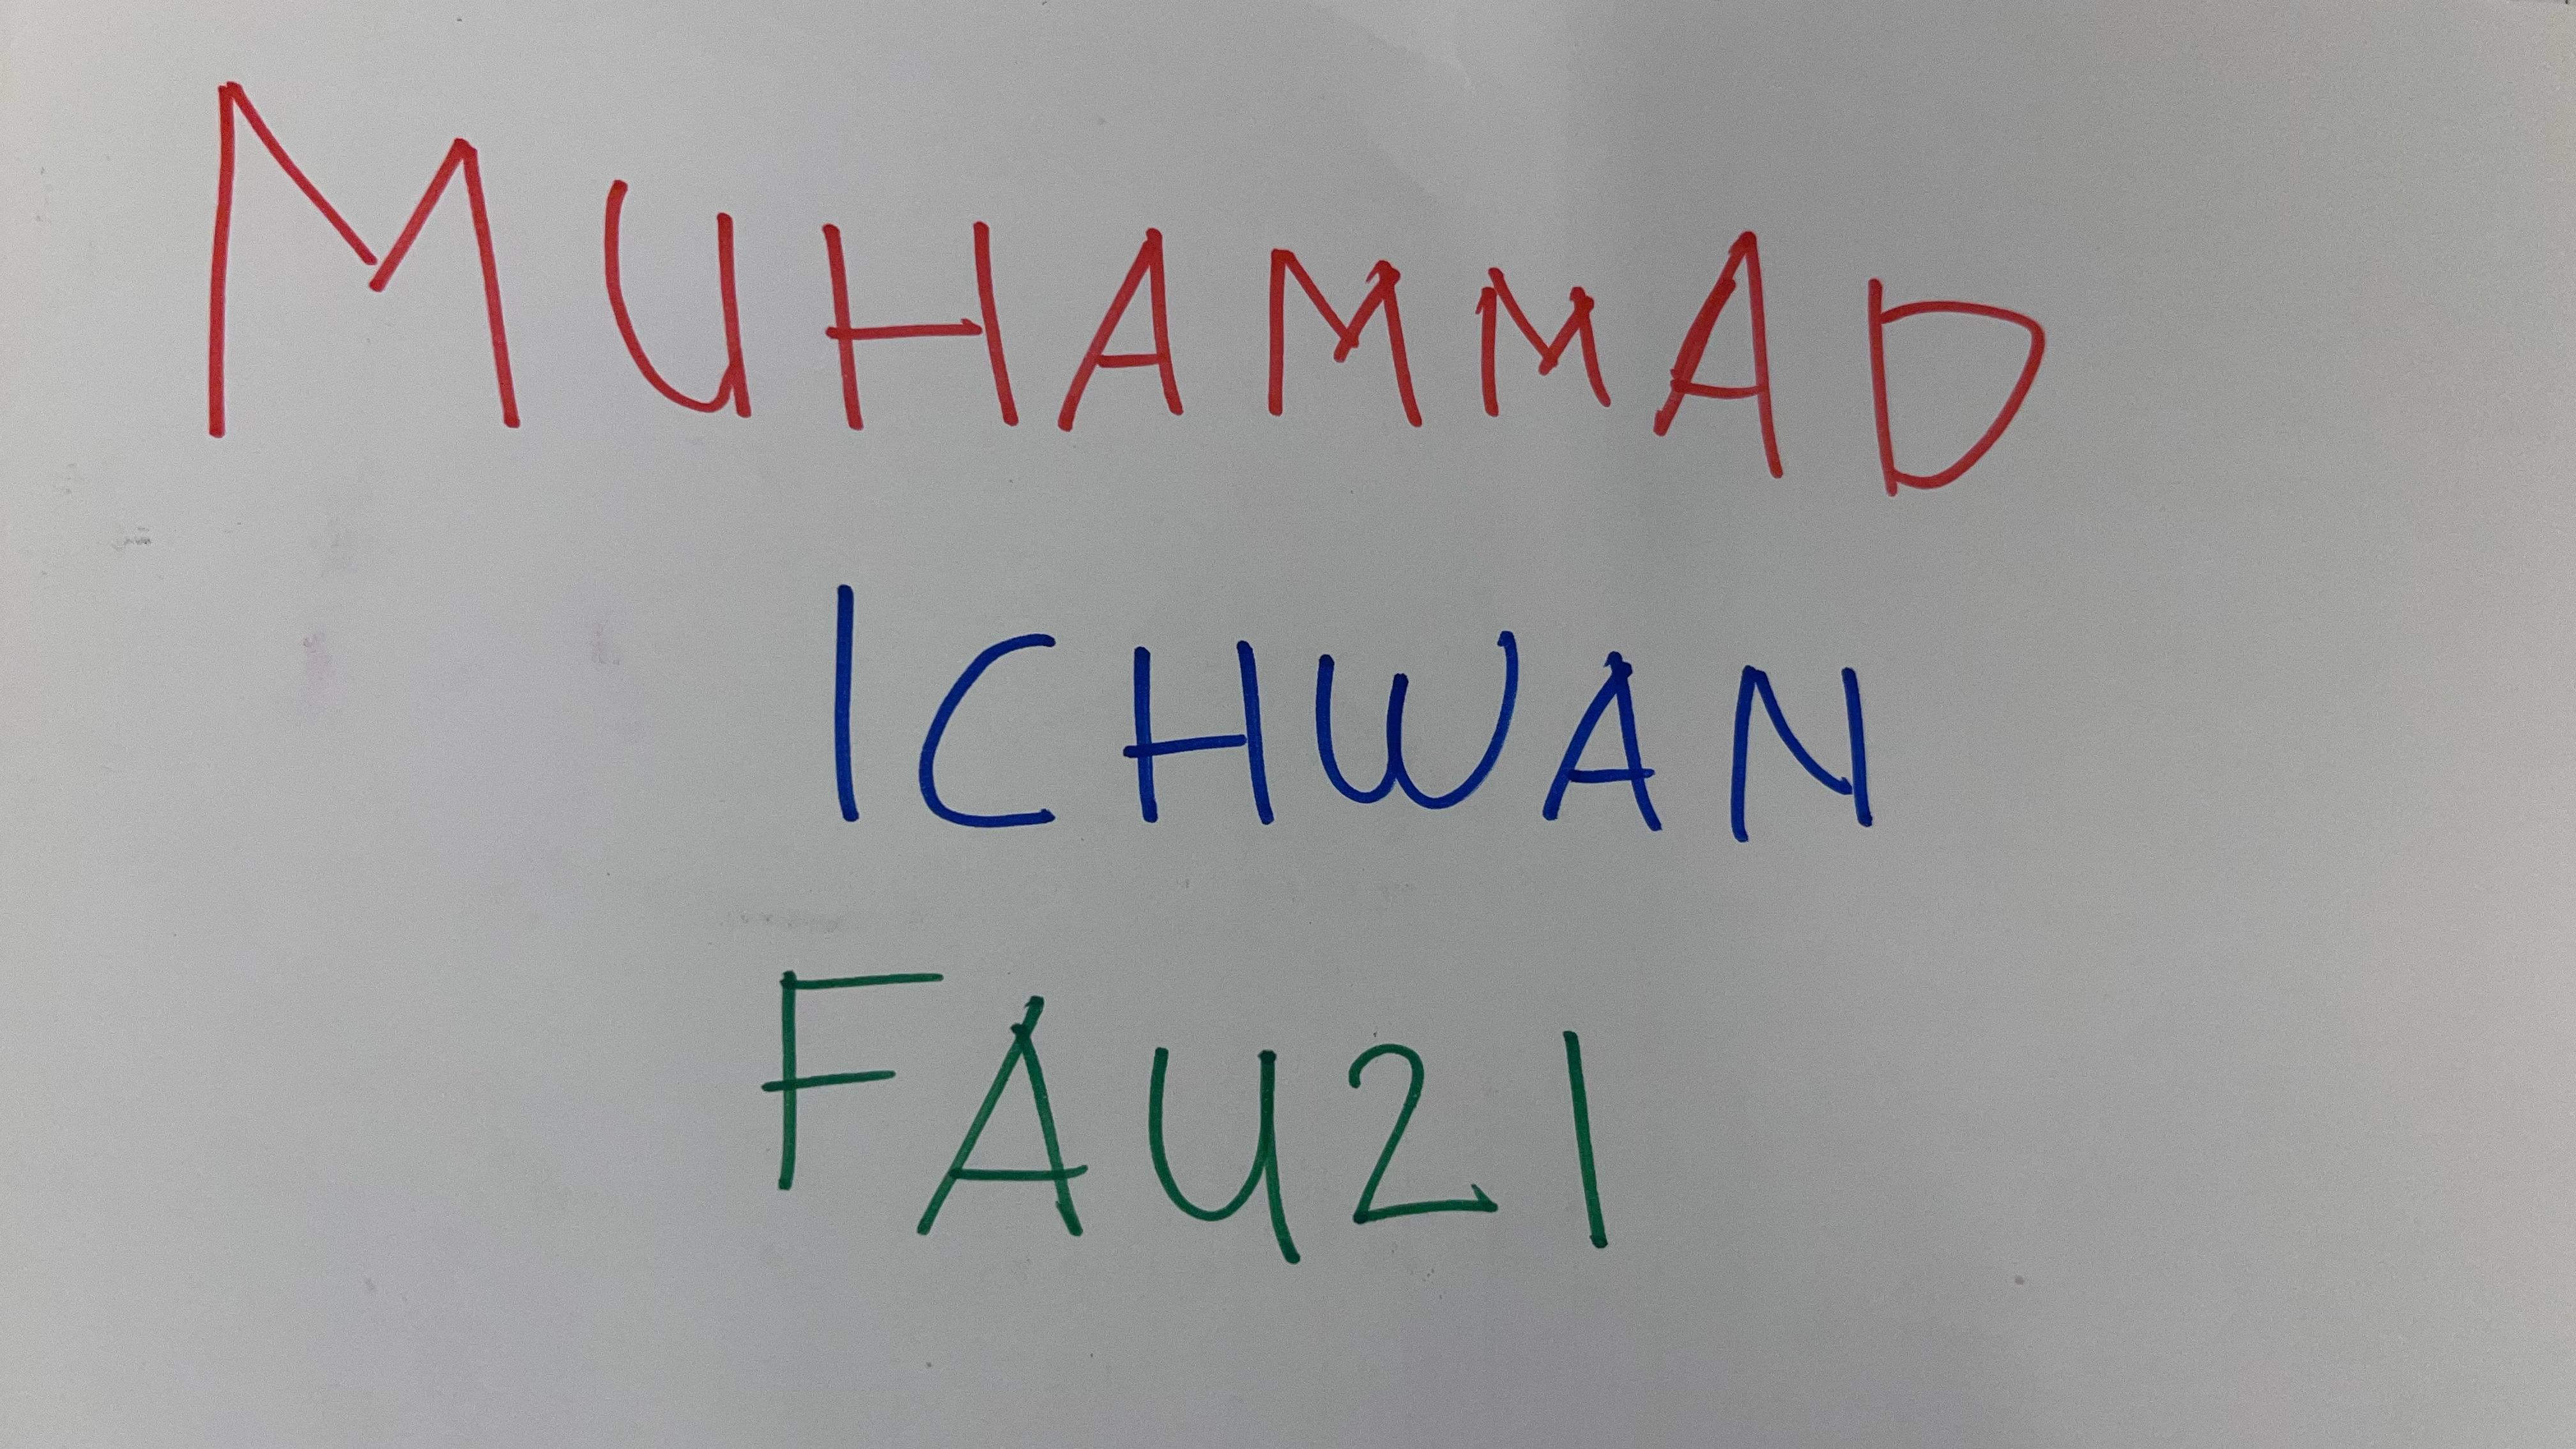 MUHAMMAD
ICHWAN
FAUZI